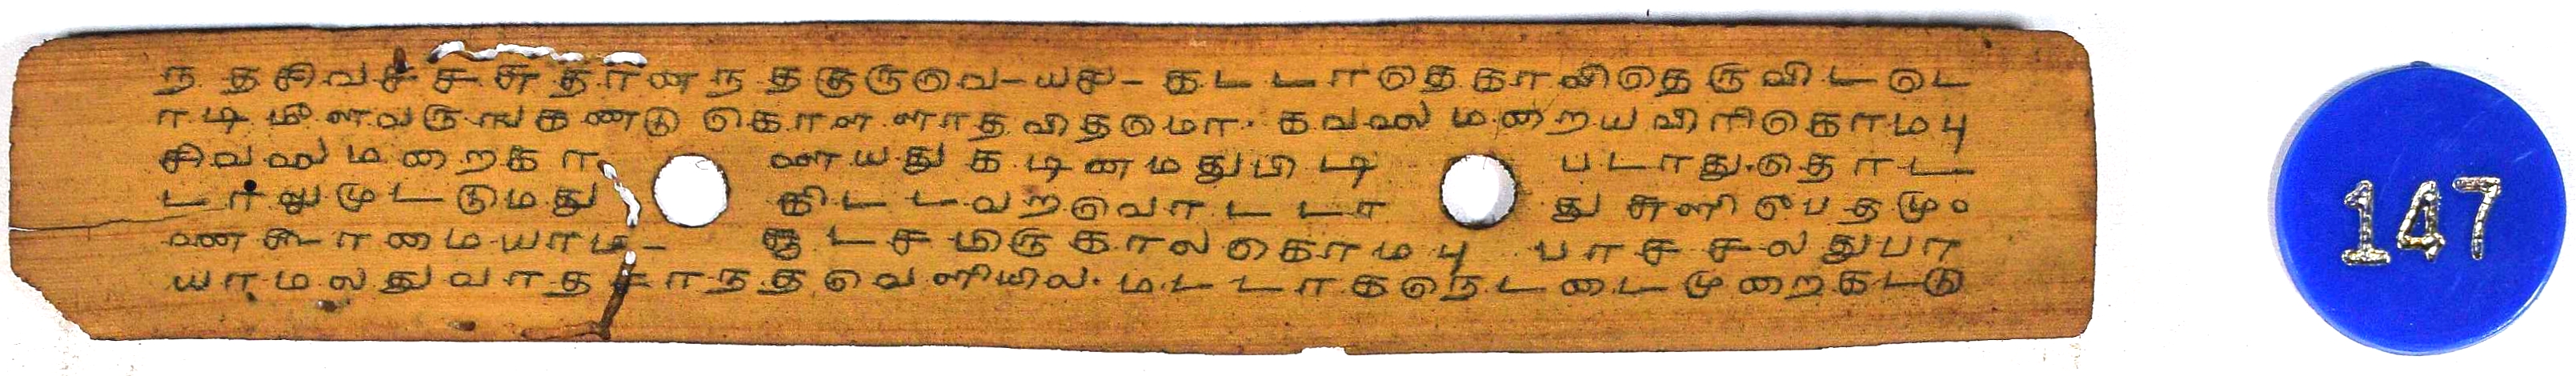 ந தசிவச சசுதானந தகுருவெ-யசு- கட டாதெகாவிதெருவிடடெ
ாடிமீளவருஙகண்டு கொளளாதவிதமொ. கவலைமறையவிரிகொமபு
சிவலைமறைகா ளாயது கடினமதுபிடி படாது.தொட
டாலுமுடடுமது கிடடவறவொடடா து சுளிஒபதமும
ணகூடாமையாம- ஐடசமிருகாலகொமபு பாசசலதுபா
யாமலதுவாதசாநதவெளியில. மடடாகநெடடைமுறைகடடு
147